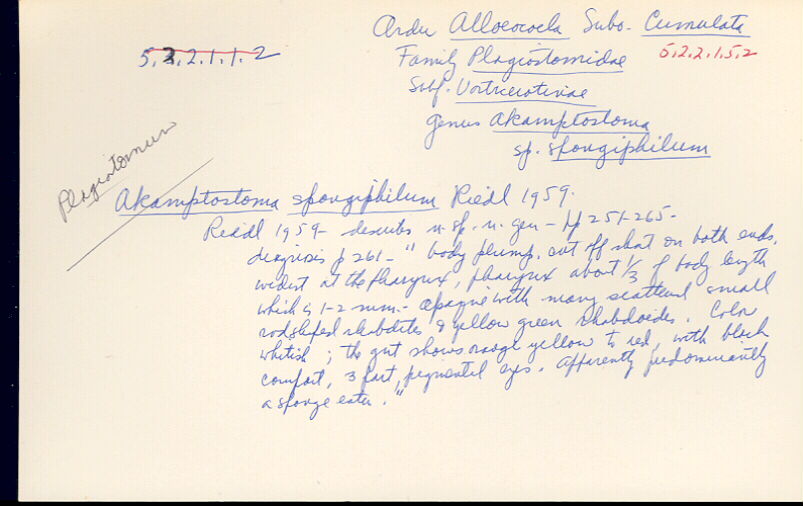 Order Alloeocoela Subo. Cumulata
5.2.2.1.1.2
Family Plagiostomidae 5.2.2.1.5.2
Subf. Vorticerotinae
genus Akamptostoma
sp. spongiphilum
Plagiostomum
Akamptostoma spongiphilum Riedl 1959.
Riedl 1959 - describes n. sp. n. gen - pp 251-265 -
diagnosis p 261 - " body plump, cut off short on both ends,
widest at the pharynx, pharynx about 1/3 of body length
which is 1-2 mm. - opaque with many scattered small
rodshaped rhabdites & yellow green rhabdoides. Color
whitish ; the gut shows orange yellow to red, with black
3 part, pigmented eyes. Apparently predominantly
a sponge eater. "